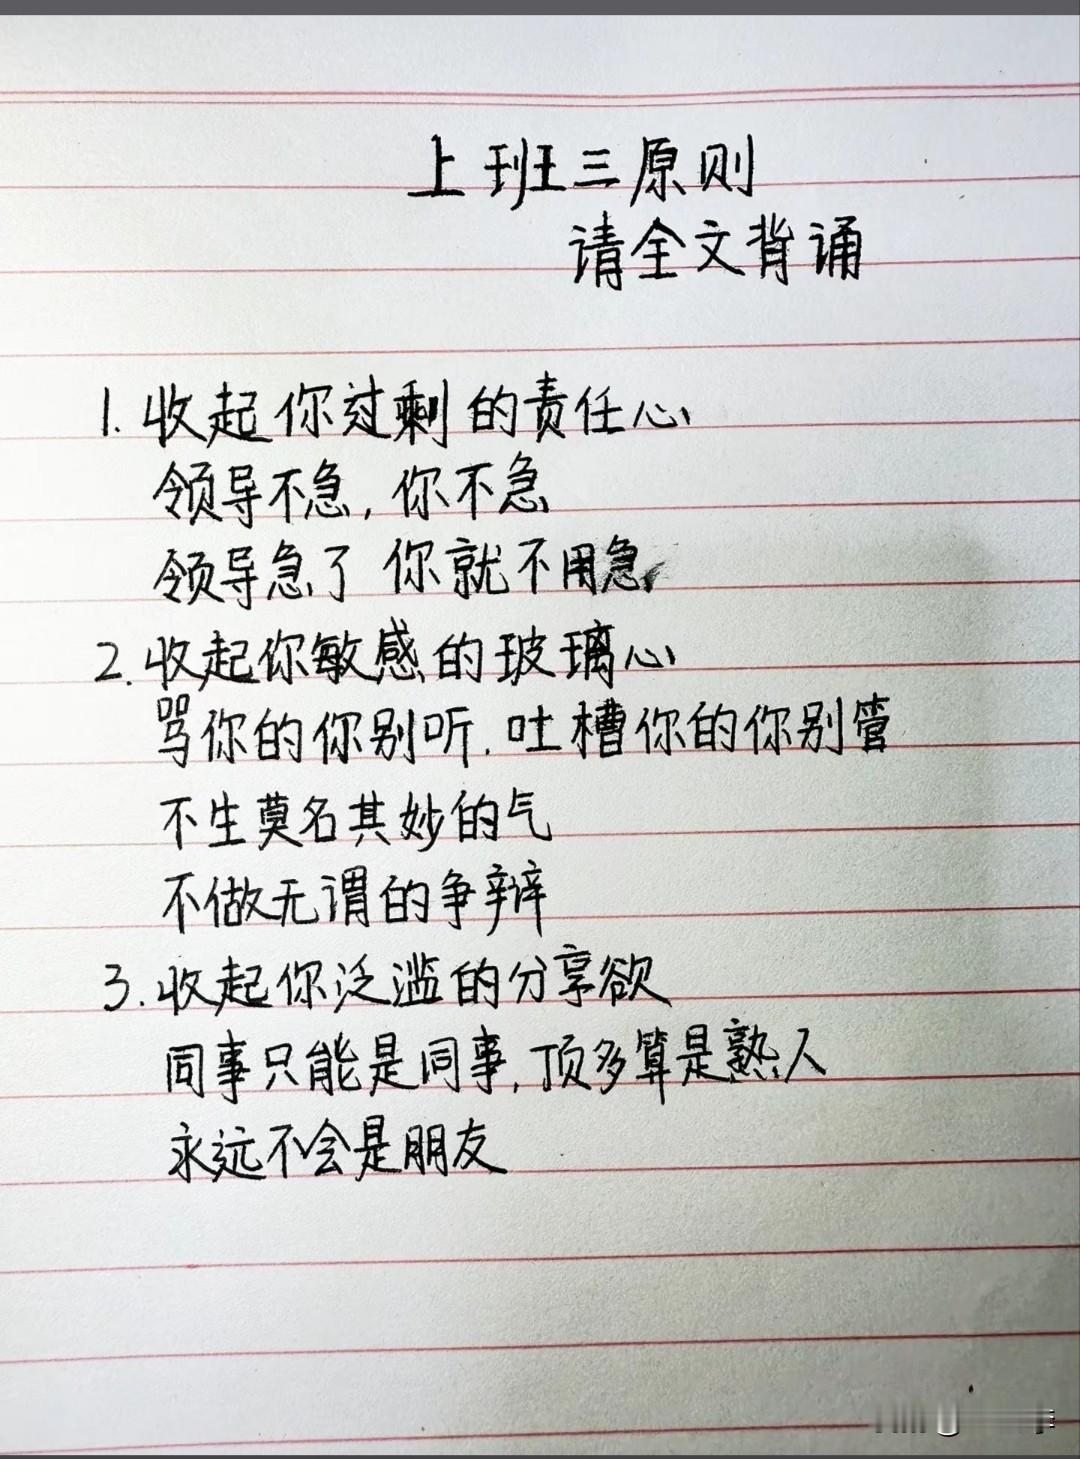 上班三原则
请全文背诵
1. 收起你过剩的责任心
领导不急, 你不急
领导急了 你就不用急
2. 收起你敏感的玻璃心
骂你的你别听. 吐槽你的你别管
不生莫名其妙的气
不做无谓的争辩
3. 收起你泛滥的分享欲
同事只能是同事, 顶多算是熟人
永远不会是朋友